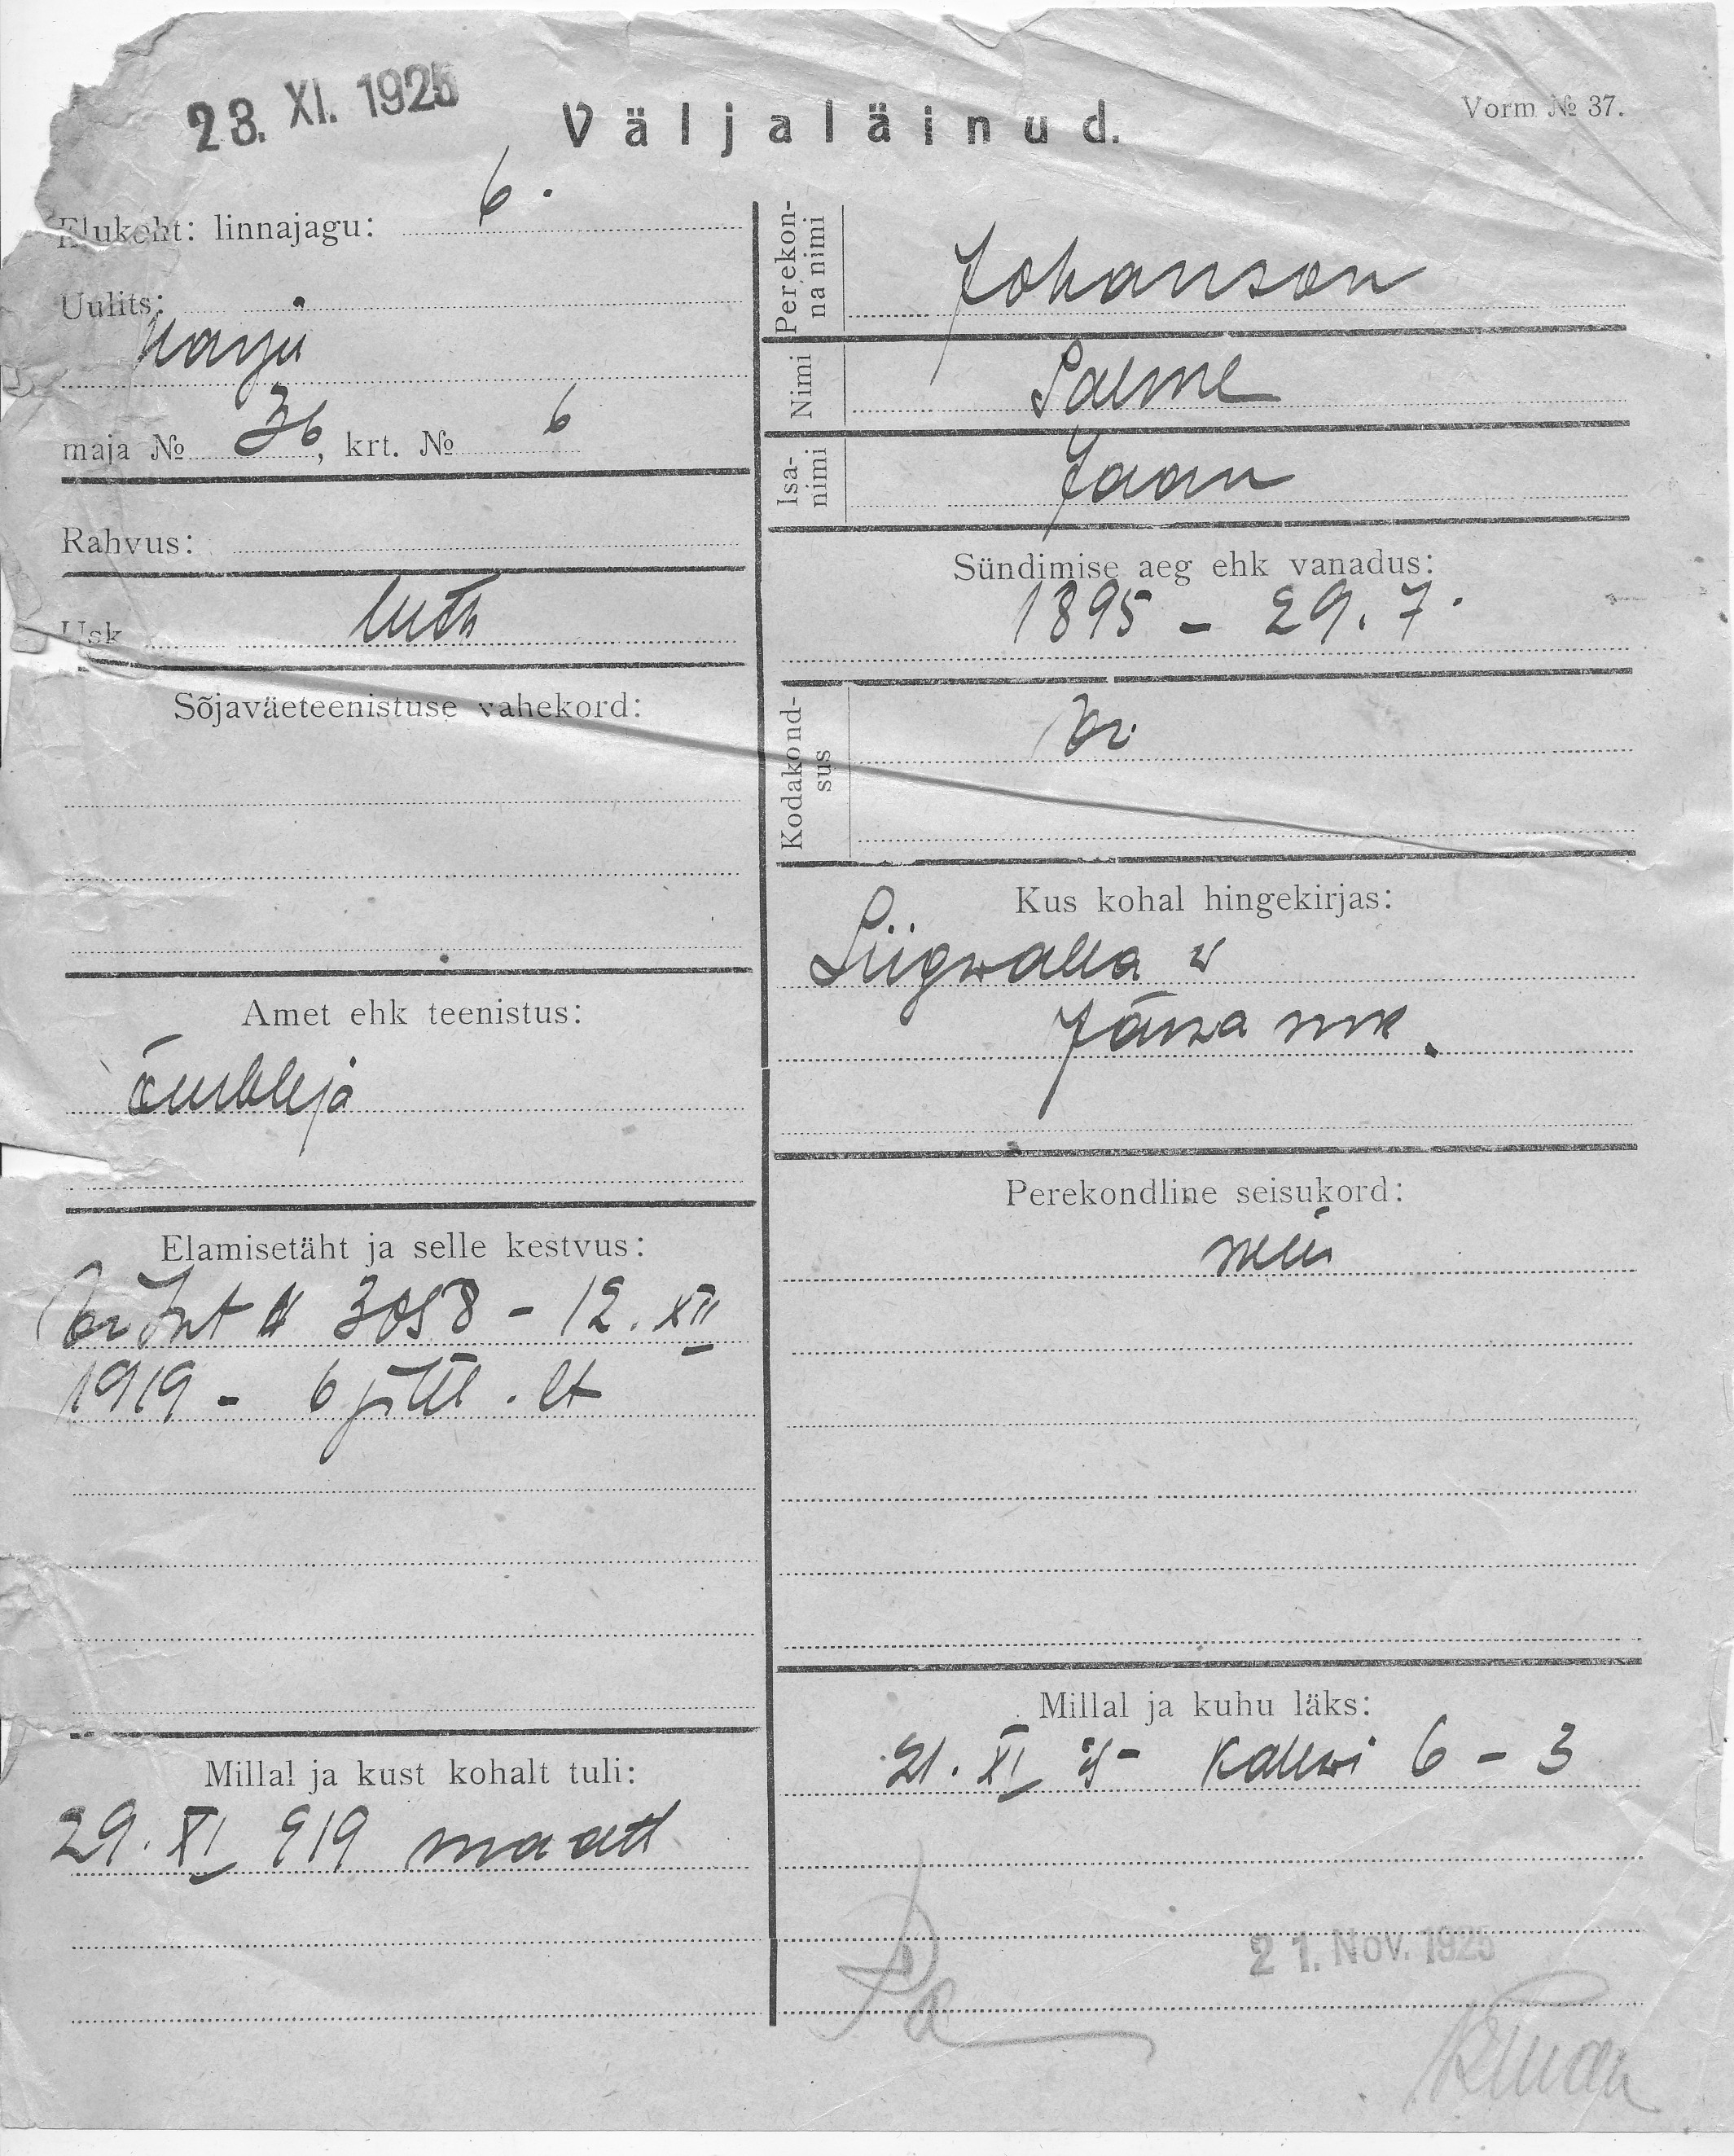 23. XI. 1925
Väljaläinud.
Vorm № 37.
Elukoht: linnajagu: 6.
Uulits:
Harju
maja № 36, krt. № 6
Rahvus:
Usk luth
Sõjaväeteenistuse vahekord:
Amet ehk teenistus:
õmbleja
Elamisetäht ja selle kestvus:
№ 3058 - 12. XII
1919 - 6 jsk.
Millal ja kust kohalt tuli:
29. XI 919 maalt
Perekonna nimi Johanson
Nimi Salme
Isanimi Jaan
Sündimise aeg ehk vanadus:
1895 - 29. 7.
Kodakondsus
Kus kohal hingekirjas:
Liigvalla v
Järva mk.
Perekondline seisukord:
neiu
Millal ja kuhu läks:
21. XI Kalevi 6 - 3
21. Nov. 1925